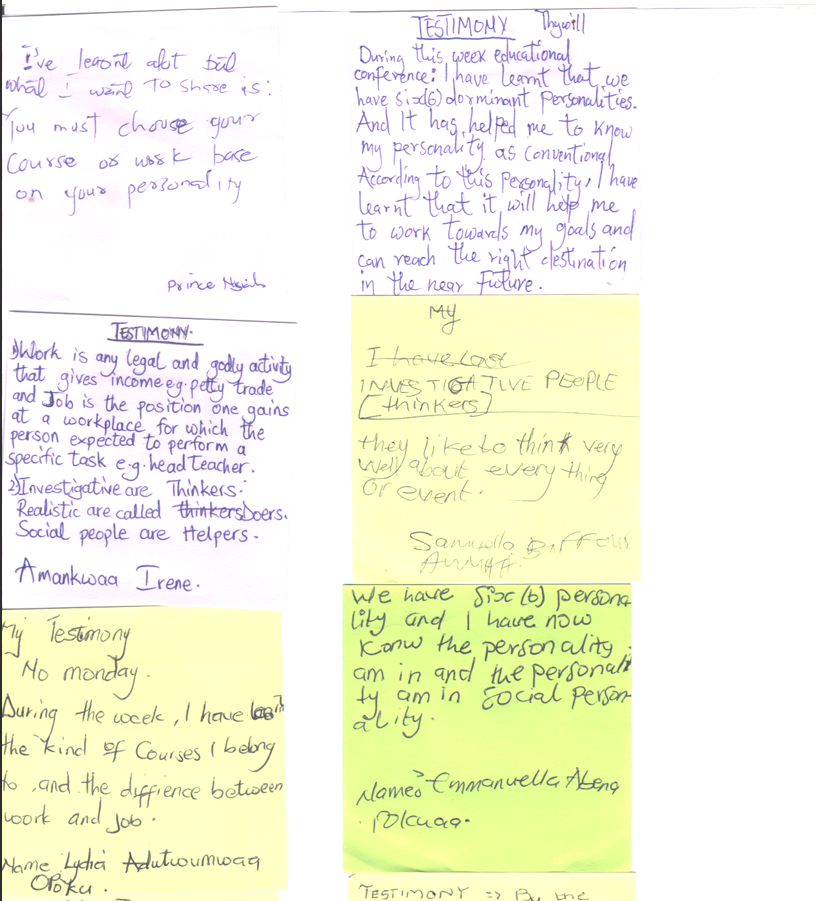 I've learnt alot but
what I want to share is:
You must choose your
course or work base
on your personality
Prince
TESTIMONY Thywill
During this week educational
conference: I have learnt that we
have six(6) dorminant personalities.
And It has helped me to know
my personality as conventional
According to this personality, I have
learnt that it will help me
to work towards my goals and
can reach the right destination
in the near future.
TESTIMONY.
1) Work is any legal and godly activity
that gives income eg. petty trade
and Job is the position one gains
at a workplace for which the
person expected to perform a
specific task e.g. head teacher.
2) Investigative are Thinkers.
Realistic are called thinkers Doers.
Social people are Helpers.
Amankwaa Irene.
My
I have Last
INVESTIGATIVE PEOPLE
[thinkers]
they like to think very
well about every thing
Or event.
My Testimony
No monday.
During the week, I have
the kind of Courses I belong
to, and the diffience between
work and job.
Name Lydia Adutwumwaa
Opoku.
We have Six (6) persona
lity and I have now
Konw the personality
am in and the personali
ty am in social person-
ality.
Name: Emmanuella Abena
Polcuaa.
TESTIMONY => By the